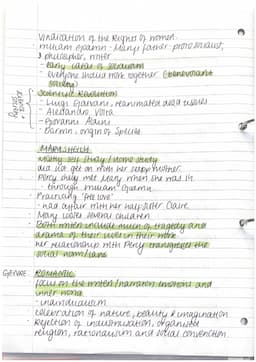 Vindication of the Rights of women.
William Godwin - Mary's father - proto socialist,
& philosopher, writer
- early ideas of socialism
- everyone should work together (benevolent
society)
Scientific Revolution
- Luigi Galvani, reanimated dead tissues
- Alessandro Volta
- Giovanni Aldini
- Darwin, origin of Species
MARY SHELLEY
Mostly self study / home study
did not get on with her step mother.
Percy Shelly met Mary when she was 14.
- through William Godwin
Practising 'free love'
- had affair with her half sister Claire
Mary loses several children
Both writers include much of tragedy and
drama of their lives in their work
her relationship with Percy transgresses the
social norm/laws
GENRE: ROMANTIC
focus on the writer/narrators emotions and
inner world
- individualism
celebration of nature, beauty & imagination
Rejection of industrialisation, organised
religion, rationalism and social convention.